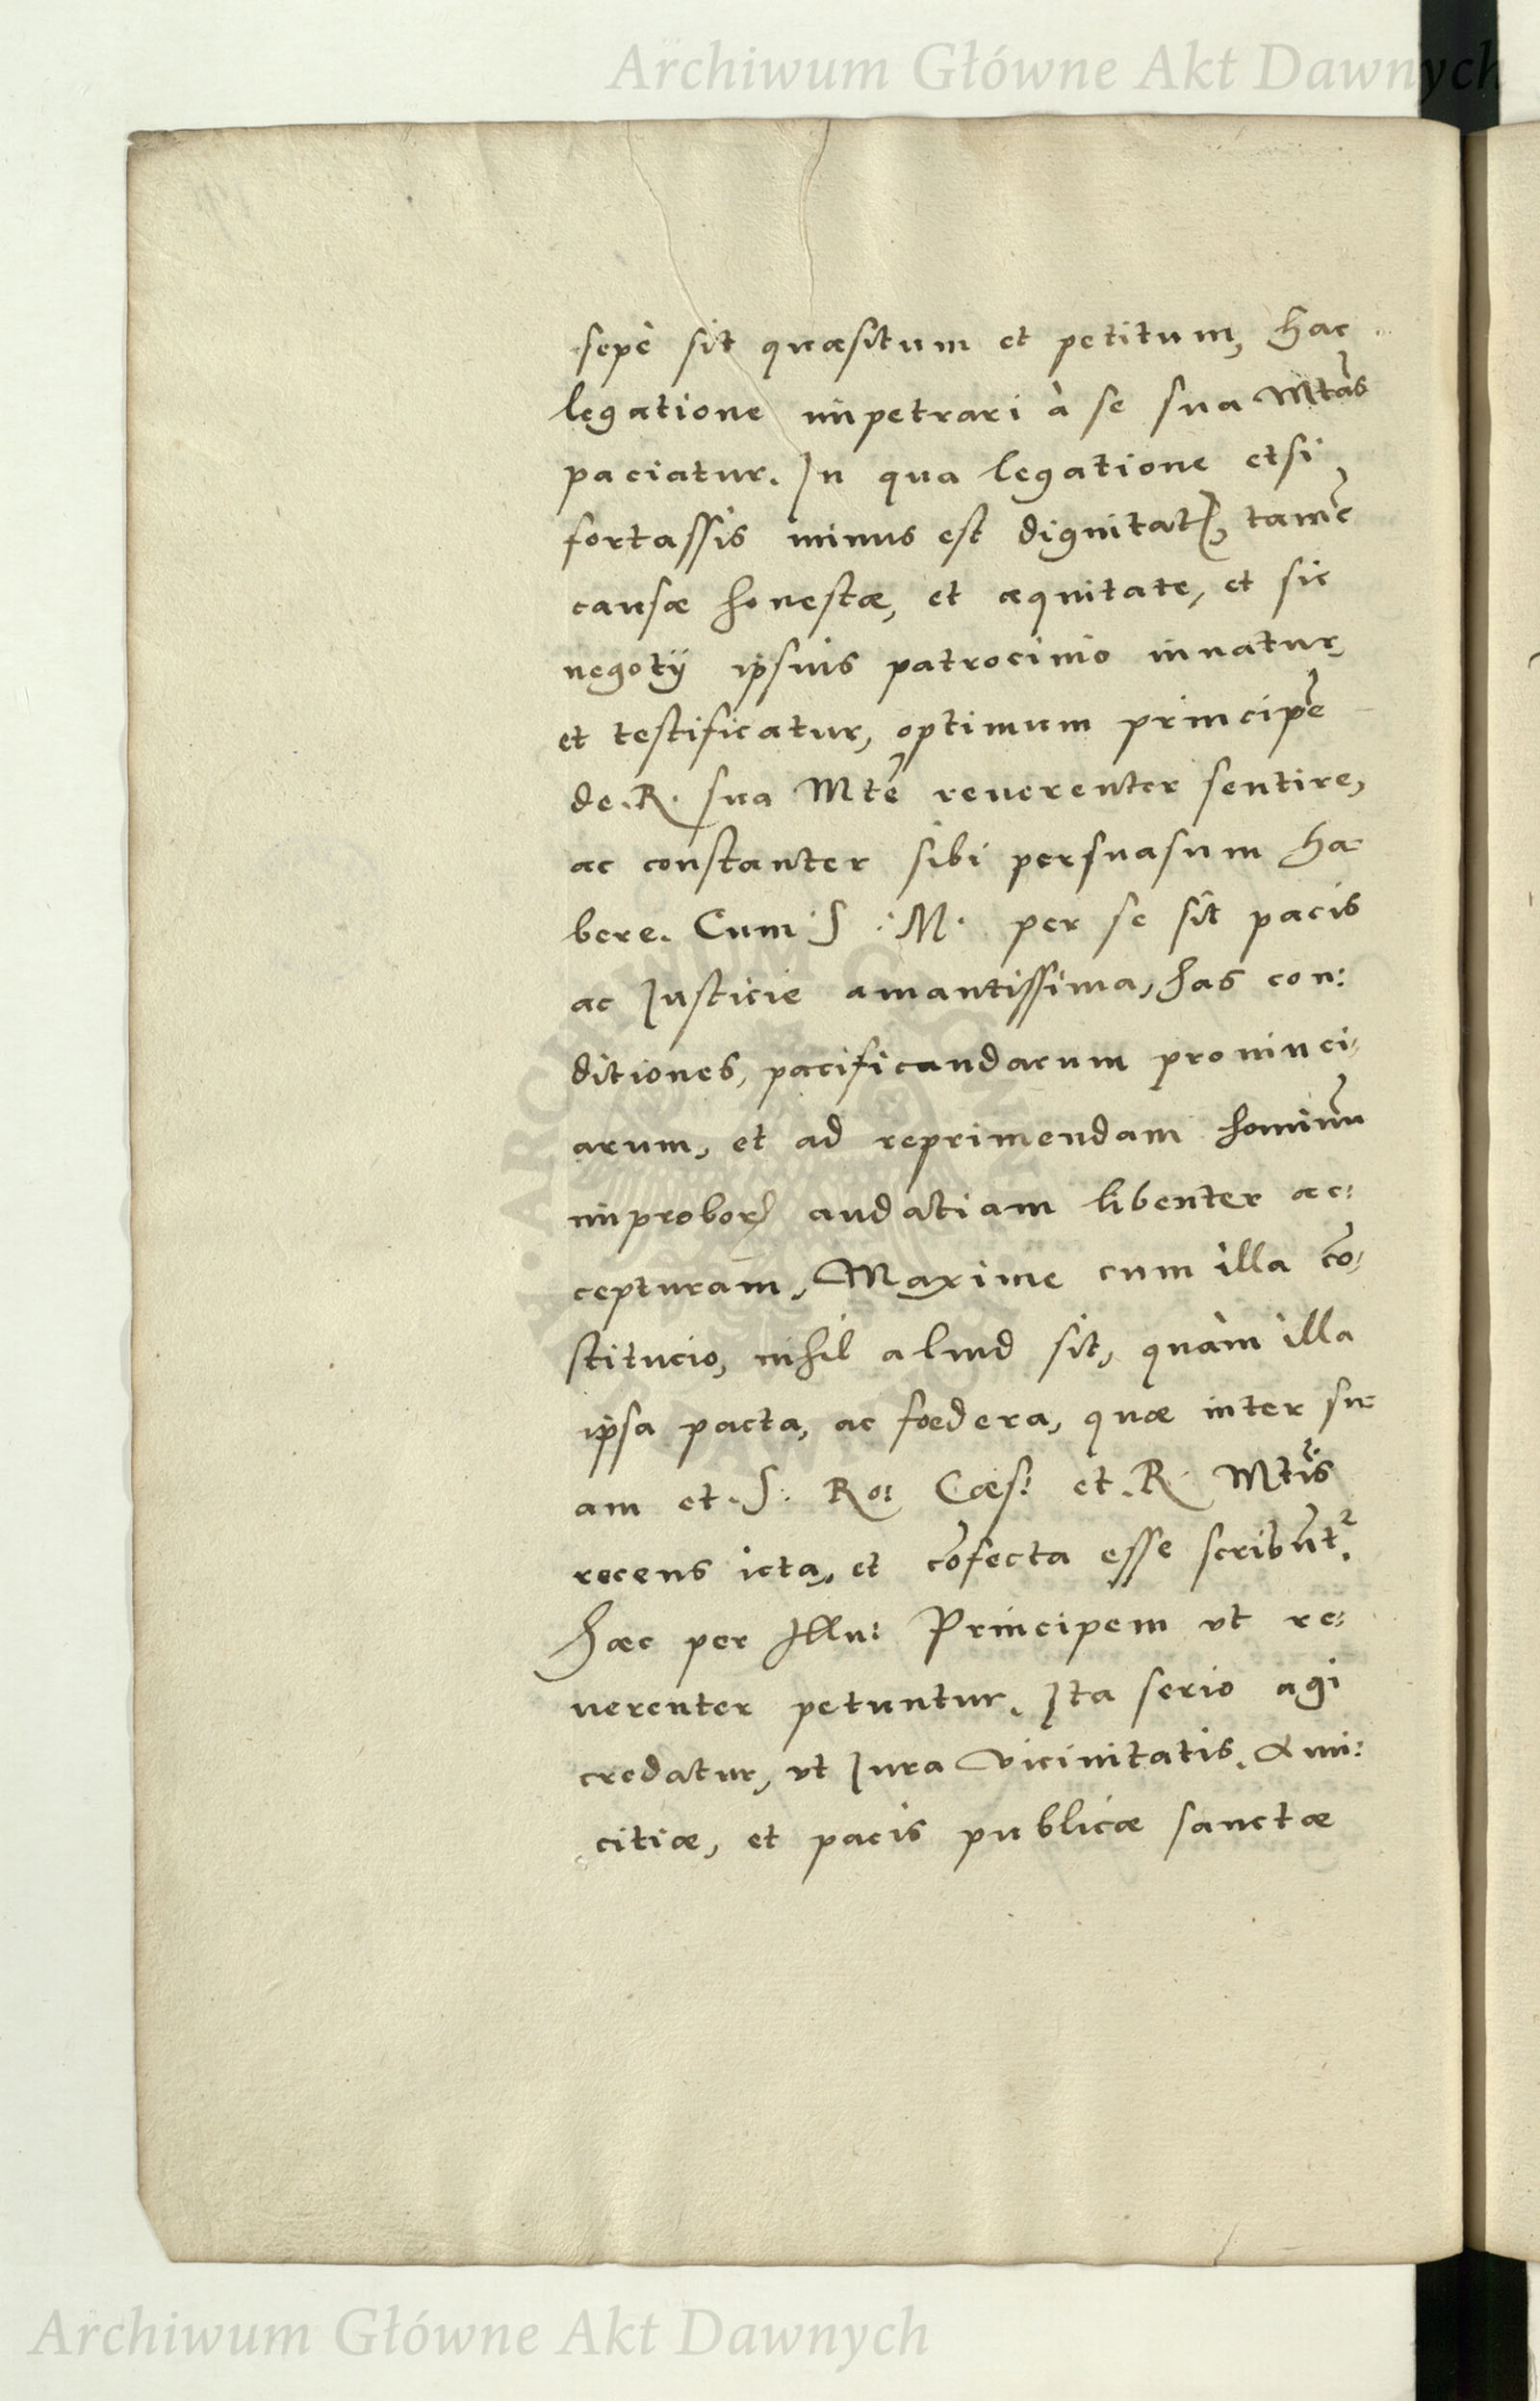 Archiwum Główne Akt Dawnych
sepè sit quæsitum et petitum, hac
legatione impetrari à se sua Mtas
paciatur. In qua legatione etsi
fortassis minus est dignitatꝭ, tamē
causæ honestæ, et æquitate, et sic
negotÿ ipsius patrocinio iuuatur,
et testificatur, optimum principē
de. R. sua Mtē reuerenter sentire,
ac constanter sibi persuasum ha-
bere. Cum S. M. per se sit pacis
ac Justicie amantissima, has con:
ditiones, pacificandarum prouinci,
arum, et ad reprimendam hominū
improborꝝ audatiam libenter ac:
cepturam, Maxime cum illa cō,
stitucio, nihil aliud sit, quàm illa
ipsa pacta, ac fœdera, quæ inter su-
am et. S. Ro: Cæs: et. R. Mtis
recens icta, et cōfecta esse scribūt².
Hæc per Illu: Principem vt re:
uerenter petuntur. Ita serio agi
credatur, vt Jura vicinitatis. Ami:
citiæ, et pacis publicæ sanctæ
Archiwum Główne Akt Dawnych